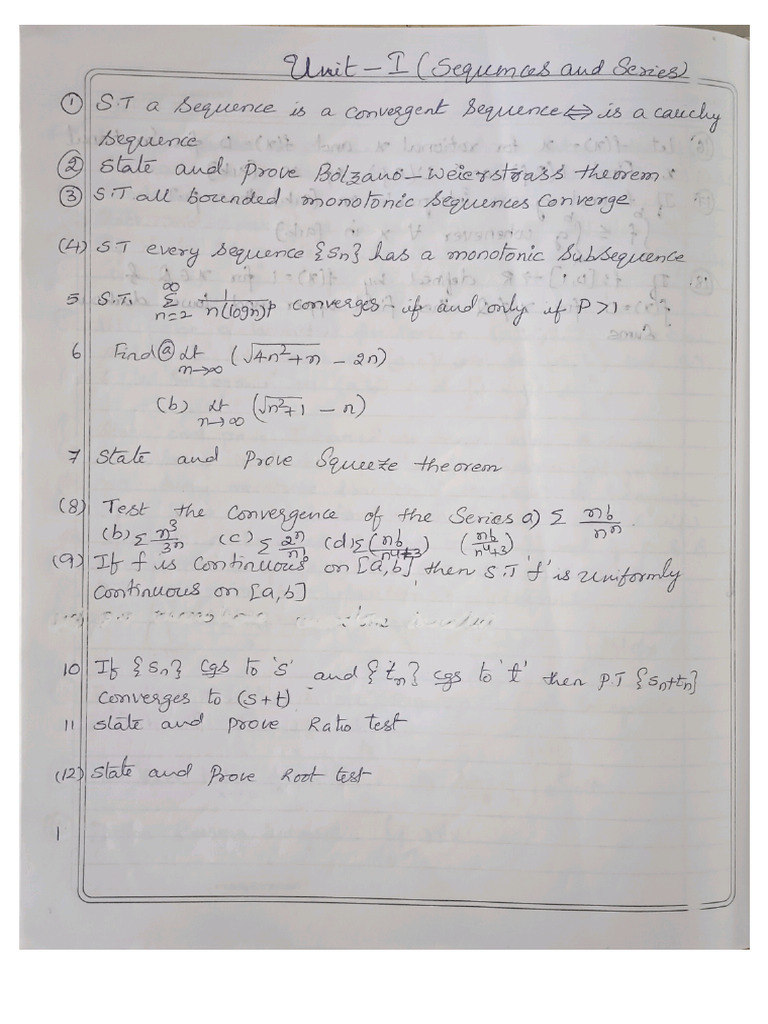 Unit - I (Sequences and Series)
① S.T a Sequence is a convergent Sequence ⇔ is a cauchy
Sequence
② State and Prove Bolzano-Weierstrass theorem.
③ S.T all bounded monotonic Sequences Converge
(4) ST every Sequence {Sn} has a monotonic Subsequence
5 S.T. ∞Σn=2 1/n(logn)^P converges if and only if P>1
6 Find ⓐ Lt n→∞ (√4n²+n - 2n)
(b) Lt n→∞ (√n²+1 - n)
7 State and Prove Squeeze theorem
(8) Test the Convergence of the Series a) Σ
(b) Σ n³/3ⁿ (c) Σ (d) Σ
(9) If f is Continuous on [a,b] then S.T 'f' is Uniformly
Continuous on [a,b]
10 If {Sn} cgs to 's' and {tn} cgs to 't' then P.T {Sn+tn}
Converges to (s+t)
11 State and Prove Ratio test
(12) State and Prove Root test
1